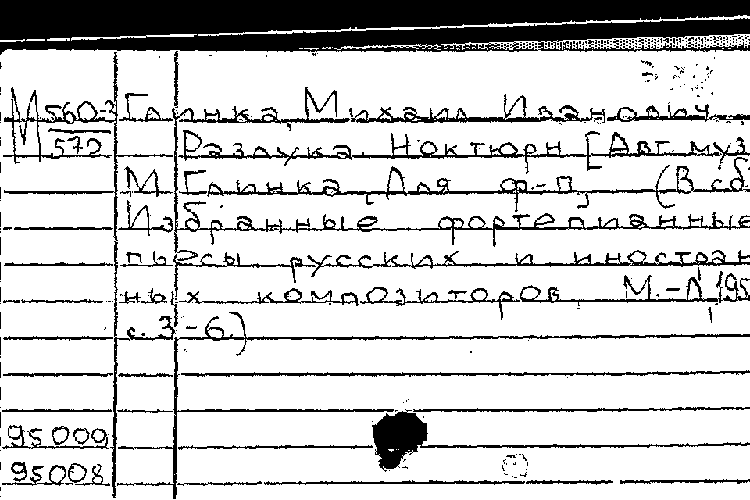 М 560-3 Глинка, Михаил Иванович.
572 Разлука. Ноктюрн [Авт. муз.
М. Глинка, Для ф.-п.] (В сб.
Избранные фортепианные
пьесы русских и иностран
ных композиторов. М.-Л, 195
с. 3-6.)
95009
95008